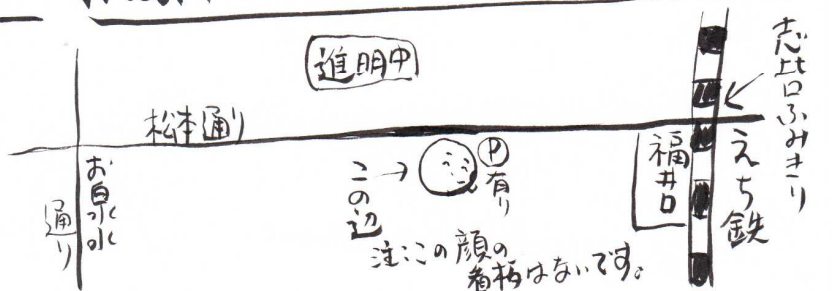 進明中
松本通り
お泉水
通り
この辺
→
P
有り
注:この顔の
看板はないです。
福井口
えち鉄
志比口ふみきり